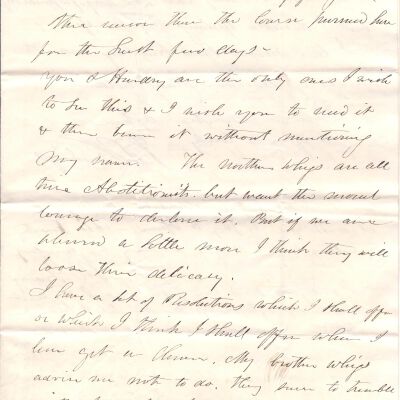 this union than the course pursued here
for the last few days -
You & Hundry are the only ones I wish
to see this & I wish you to read it
& then burn it without mentioning
my name. The northern whigs are all
true Abolitionists. but want the moral
courage to declare it. But if we are
a little more I think they will
loose their delicacy.
I have a set of Resolutions which I shall offer
or which I think I shall offer when I
can get a chance. My brother whigs
advise me not to do. they seem to tremble